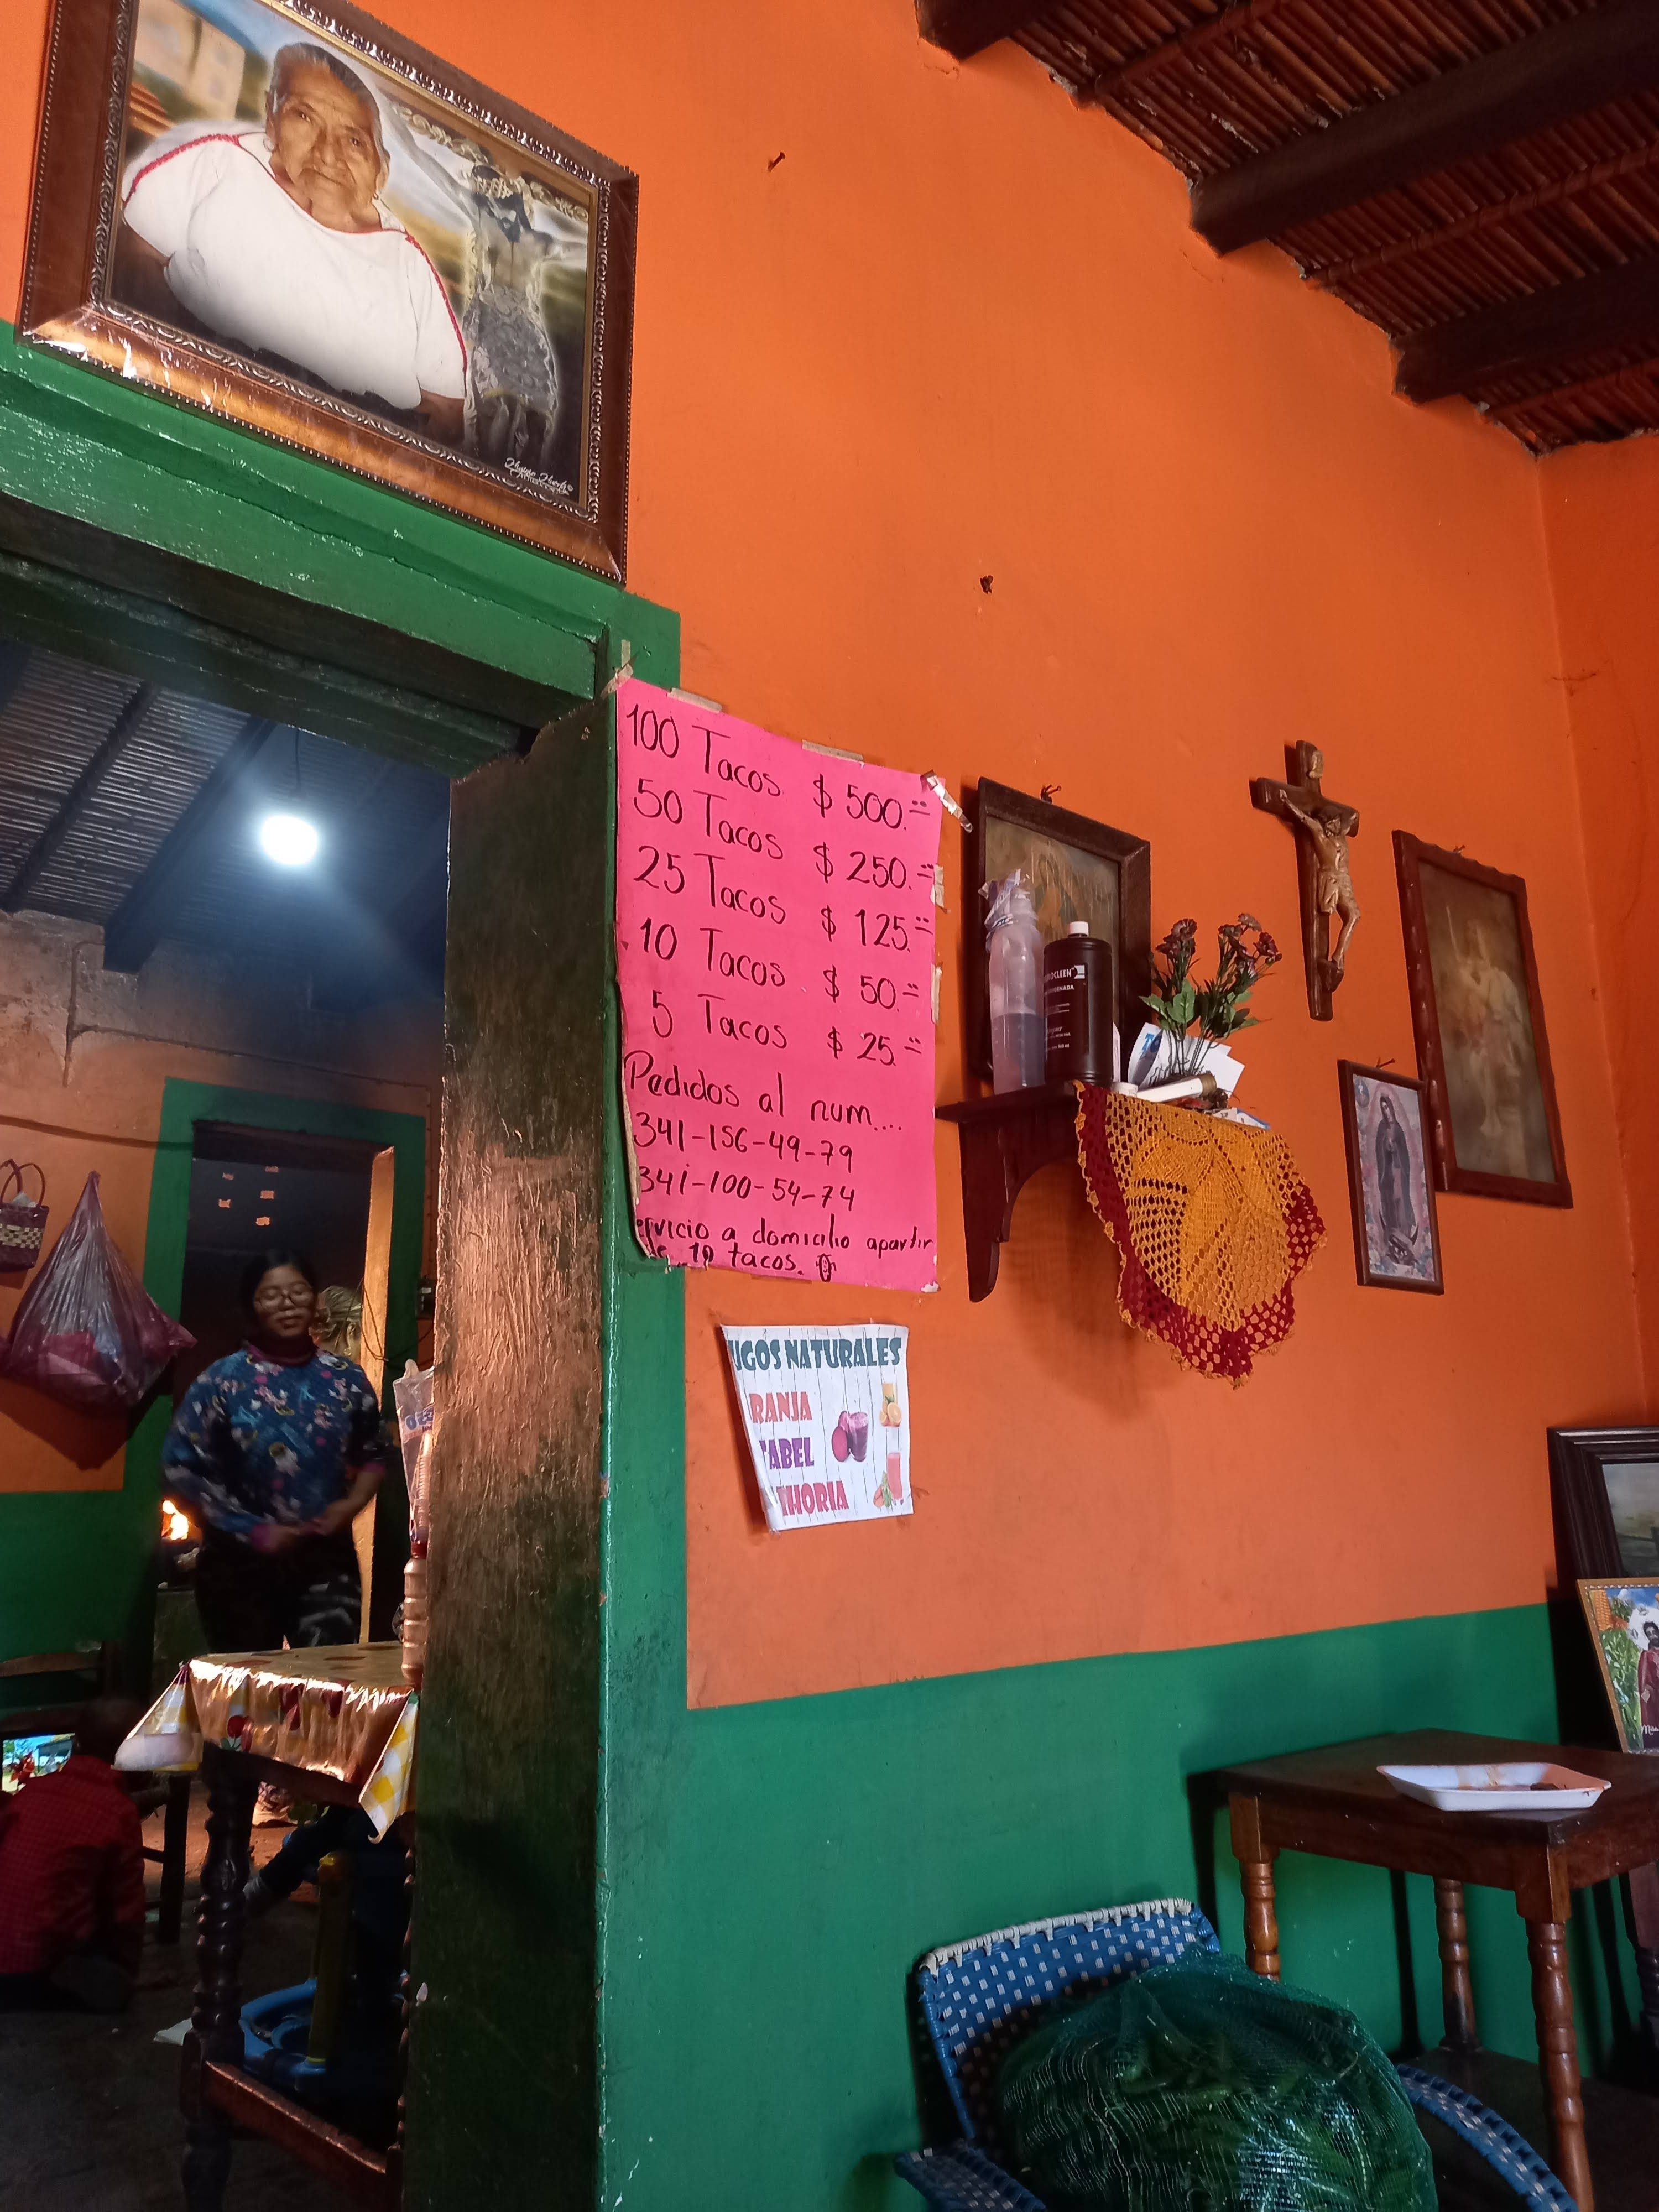 100 Tacos $ 500.=
50 Tacos $ 250.=
25 Tacos $ 125.=
10 Tacos $ 50.=
5 Tacos $ 25.=
Pedidos al num....
341-156-49-79
341-100-54-74
ervicio a domicilio apartir
10 tacos.
UGOS NATURALES
RANJA
TABEL
HORIA